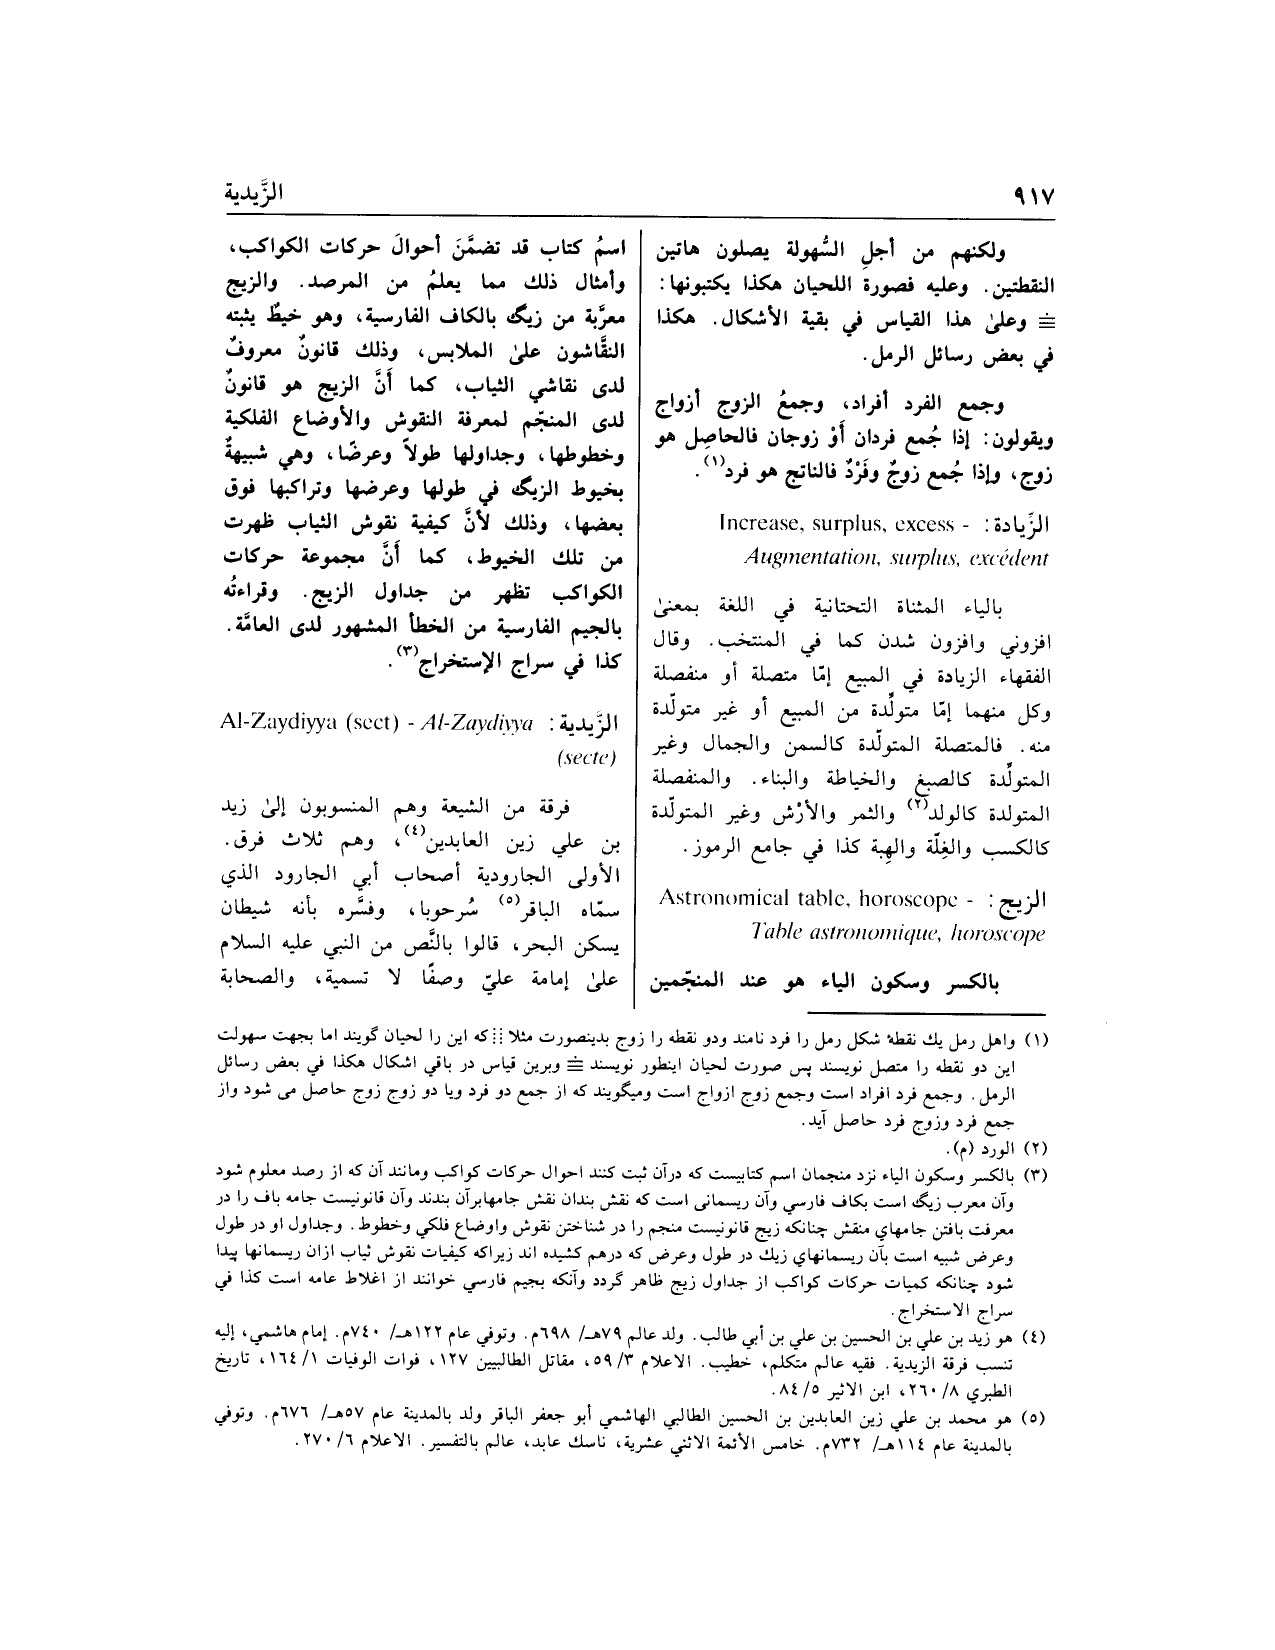 ٩١٧
الزَّيدية
ولكنهم من أجلِ السُّهولة يصلون هاتين
النقطتين. وعليه فصورة اللحيان هكذا يكتبونها:
وعلىٰ هذا القياس في بقية الأشكال. هكذا
في بعض رسائل الرمل.
وجمع الفرد أفراد، وجمعُ الزوج أزواج
ويقولون: إذا جُمع فردان أَوْ زوجان فالحاصِل هو
زوج، وإذا جُمع زوجٌ وفَرْدٌ فالناتج هو فرد(١).
الزِّيادة: Increase, surplus, excess -
Augmentation, surplus, excédent
بالياء المثناة التحتانية في اللغة بمعنىٰ
افزوني وافزون شدن كما في المنتخب. وقال
الفقهاء الزيادة في المبيع إمّا متصلة أو منفصلة
وكل منهما إمّا متولِّدة من المبيع أو غير متولّدة
منه. فالمتصلة المتولّدة كالسمن والجمال وغير
المتولِّدة كالصبغ والخياطة والبناء. والمنفصلة
المتولدة كالولد(٢) والثمر والأرْش وغير المتولّدة
كالكسب والغِلّة والهِبة كذا في جامع الرموز.
الزيج: Astronomical table, horoscope -
Table astronomique, horoscope
بالكسر وسكون الياء هو عند المنجّمين
اسمُ كتاب قد تضمَّنَ أحوالَ حركات الكواكب،
وأمثال ذلك مما يعلمُ من المرصد. والزيج
معرَّبة من زيگ بالكاف الفارسية، وهو خيطٌ يثبته
النقَّاشون علىٰ الملابس، وذلك قانونٌ معروفٌ
لدى نقاشي الثياب، كما أَنَّ الزيج هو قانونٌ
لدى المنجّم لمعرفة النقوش والأوضاع الفلكية
وخطوطها، وجداولها طولاً وعرضًا، وهي شبيهةٌ
بخيوط الزيگ في طولها وعرضها وتراكبها فوق
بعضها، وذلك لأنَّ كيفية نقوش الثياب ظهرت
من تلك الخيوط، كما أَنَّ مجموعة حركات
الكواكب تظهر من جداول الزيج. وقراءتُه
بالجيم الفارسية من الخطأ المشهور لدى العامَّة.
كذا في سراج الإستخراج(٣).
الزَّيدية: Al-Zaydiyya (sect) - Al-Zaydiyya
(secte)
فرقة من الشيعة وهم المنسوبون إلىٰ زيد
بن علي زين العابدين(٤)، وهم ثلاث فرق.
الأولى الجارودية أصحاب أبي الجارود الذي
سمّاه الباقر(٥) سُرحوبا، وفسَّره بأنه شيطان
يسكن البحر، قالوا بالنَّص من النبي عليه السلام
علىٰ إمامة عليّ وصفًا لا تسمية، والصحابة
(١) واهل رمل يك نقطهٔ شكل رمل را فرد نامند ودو نقطه را زوج بدينصورت مثلا که اين را لحيان گويند اما بجهت سهولت
اين دو نقطه را متصل نويسند پس صورت لحيان اينطور نويسند وبرين قياس در باقي اشكال هكذا في بعض رسائل
الرمل. وجمع فرد افراد است وجمع زوج ازواج است وميگويند كه از جمع دو فرد ويا دو زوج زوج حاصل مى شود واز
جمع فرد وزوج فرد حاصل آيد.
(٢) الورد (م).
(٣) بالكسر وسكون الياء نزد منجمان اسم كتابيست كه درآن ثبت كنند احوال حركات كواكب ومانند آن كه از رصد معلوم شود
وآن معرب زيگ است بكاف فارسي وآن ريسمانى است كه نقش بندان نقش جامهابرآن بندند وآن قانونيست جامه باف را در
معرفت بافتن جامهاي منقش چنانكه زيج قانونيست منجم را در شناختن نقوش واوضاع فلكي وخطوط. وجداول او در طول
وعرض شبيه است بآن ريسمانهاي زيك در طول وعرض كه درهم كشيده اند زيراكه كيفيات نقوش ثياب ازان ريسمانها پيدا
شود چنانكه كميات حركات كواكب از جداول زيج ظاهر گردد وآنكه بجيم فارسي خوانند از اغلاط عامه است كذا في
سراج الاستخراج.
(٤) هو زيد بن علي بن الحسين بن علي بن أبي طالب. ولد عالم ٧٩هـ/ ٦٩٨م. وتوفي عام ١٢٢هـ/ ٧٤٠م. إمام هاشمي، إليه
تنسب فرقة الزيدية. فقيه عالم متكلم، خطيب. الاعلام ٣/ ٥٩، مقاتل الطالبيين ١٢٧، فوات الوفيات ١/ ١٦٤، تاريخ
الطبري ٨/ ٢٦٠، ابن الاثير ٥/ ٨٤.
(٥) هو محمد بن علي زين العابدين بن الحسين الطالبي الهاشمي أبو جعفر الباقر ولد بالمدينة عام ٥٧هـ/ ٦٧٦م. وتوفي
بالمدينة عام ١١٤هـ/ ٧٣٢م. خامس الأئمة الاثني عشرية، ناسك عابد، عالم بالتفسير. الاعلام ٦/ ٢٧٠.